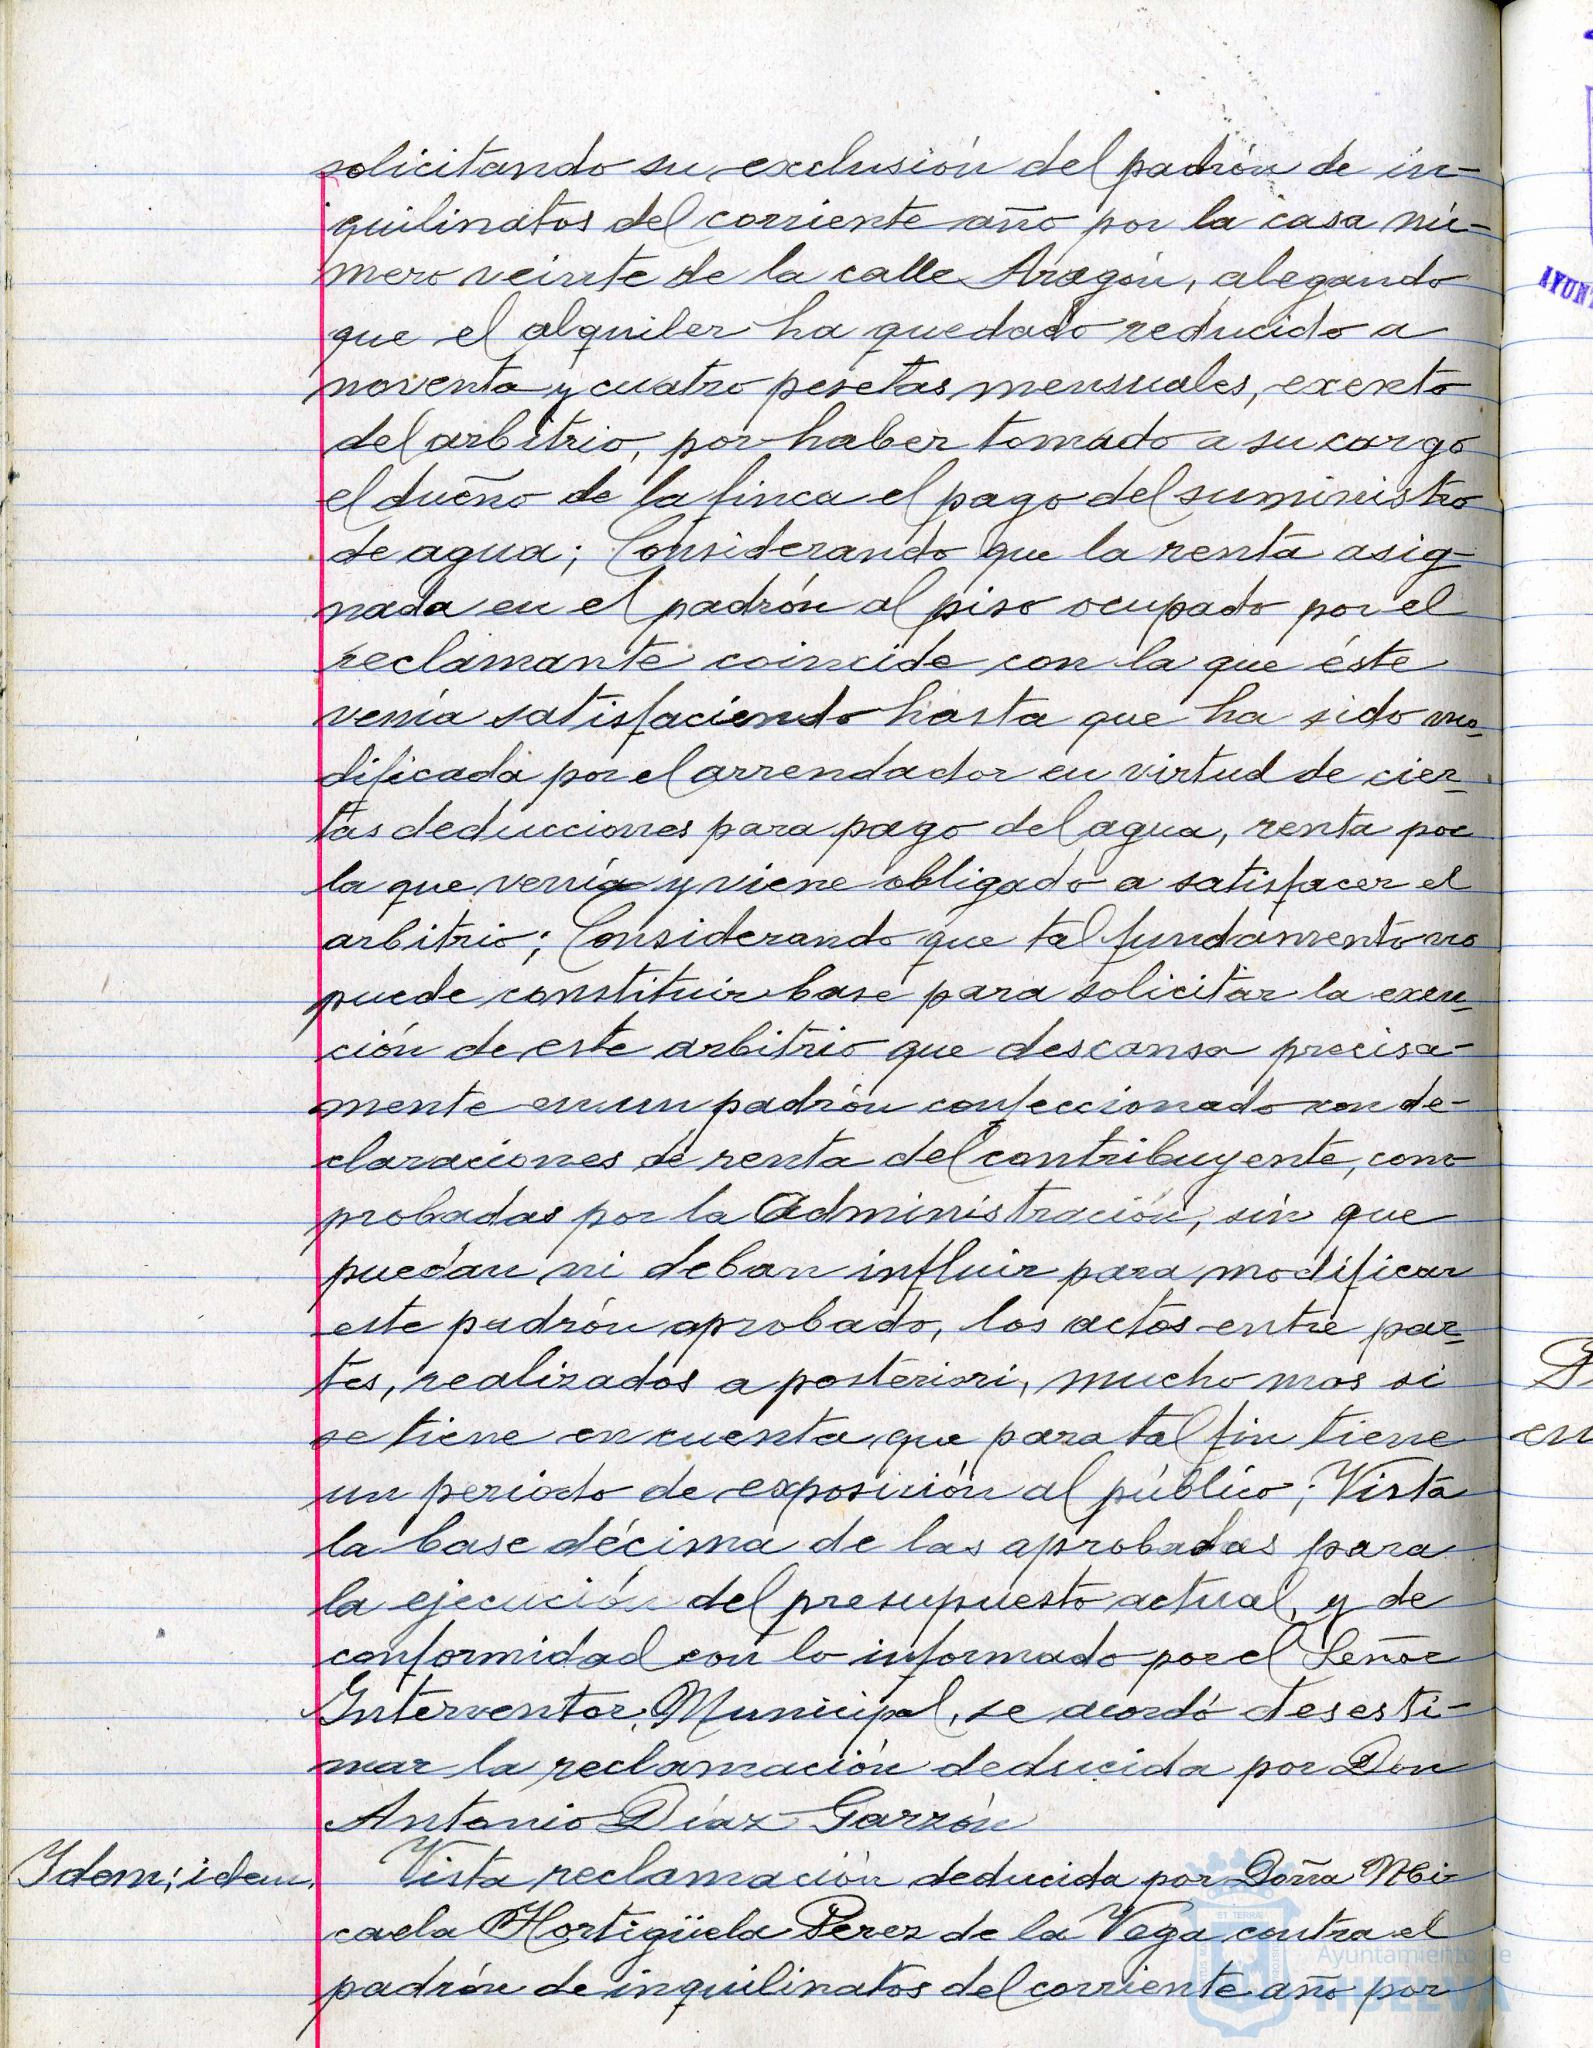 solicitando su exclusión del padrón de in-
quilinatos del corriente año por la casa nú-
mero veinte de la calle Aragón, alegando
que el alquiler ha quedado reducido a
noventa y cuatro pesetas mensuales, exento
del arbitrio, por haber tomado a su cargo
el dueño de la finca el pago del suministro
de agua; Considerando que la renta asig-
nada en el padrón al piso ocupado por el
reclamante coincide con la que éste
venía satisfaciendo hasta que ha sido mo-
dificada por el arrendador en virtud de cier-
tas deducciones para pago del agua, renta por
la que venía y viene obligado a satisfacer el
arbitrio; Considerando que tal fundamento no
puede constituir base para solicitar la exen-
ción de este arbitrio que descansa precisa-
mente en un padrón confeccionado con de-
claraciones de renta del contribuyente, com-
probadas por la Administración, sin que
puedan ni deban influir para modificar
este padrón aprobado, los actos entre par-
tes, realizados a posteriori, mucho mas si
se tiene en cuenta que para tal fin tiene
un periodo de exposición al público; Vista
la base décima de las aprobadas para
la ejecución del presupuesto actual, y de
conformidad con lo informado por el Señor
Interventor Municipal, se acordó desesti-
mar la reclamación deducida por Don
Antonio Díaz Garzón
Idem; idem. Vista reclamación deducida por Doña Mi-
caela Hortigüela Perez de la Vega contra el
padrón de inquilinatos del corriente año por
Ayuntamiento de
HUELVA
AYUNT
en